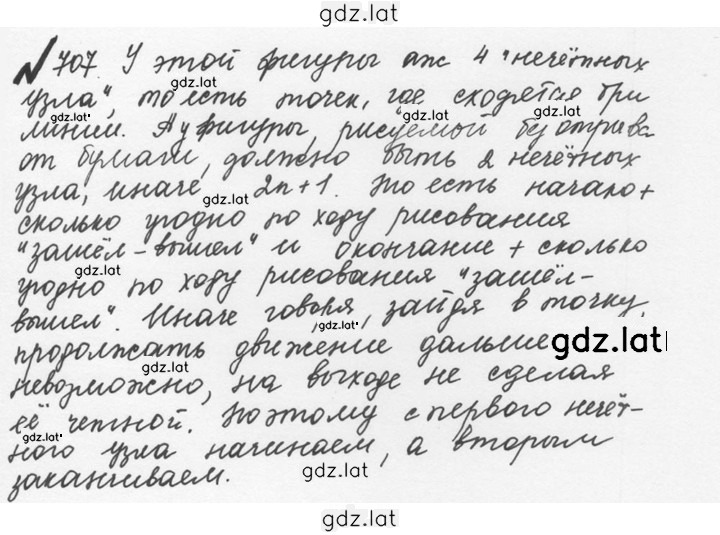 gdz.lat
№707. У этой фигуры аж 4 "нечётных
gdz.lat
узла", то есть точек, где сходятся три
gdz.lat gdz.lat
линии. А у фигуры, рисуемой без отрыва
от бумаги, должно быть 2 нечётных
узла, иначе 2n+1. То есть начало +
gdz.lat
сколько угодно по ходу рисования
"зашёл-вышел" и окончание + сколько
gdz.lat
угодно по ходу рисования "зашёл-
вышел". Иначе говоря, зайдя в точку,
gdz.lat
продолжать движение дальше
gdz.lat
невозможно, на выходе не сделая
gdz.lat
её четной. Поэтому с первого нечёт-
gdz.lat
ного узла начинаем, а вторым
заканчиваем.
gdz.lat
gdz.lat